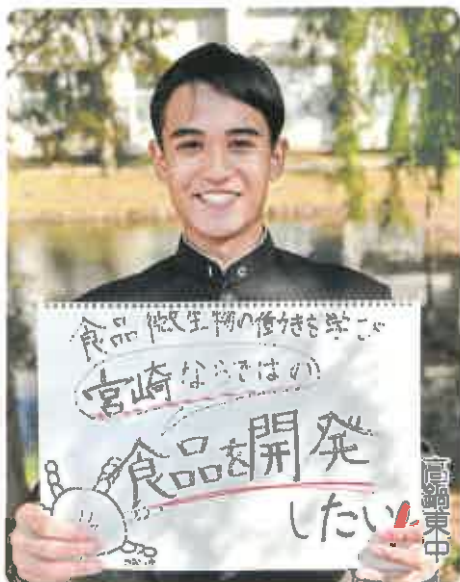 食品微生物の働きを学び
宮崎ならではの
食品を開発
したい!
高鍋東中